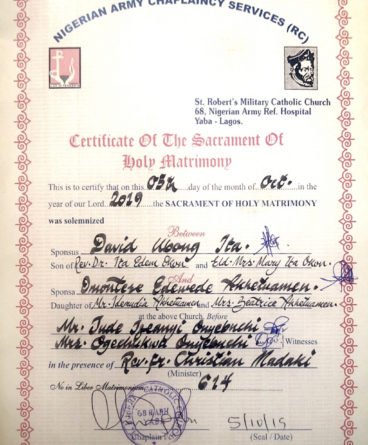 NIGERIAN ARMY CHAPLAINCY SERVICES (RC)
St. Robert's Military Catholic Church
68, Nigerian Army Ref. Hospital
Yaba - Lagos.
Certificate Of The Sacrament Of
Holy Matrimony
This is to certify that on this 05th day of the month of Oct. in the
year of our Lord 2019 the SACRAMENT OF HOLY MATRIMONY
was solemnized
Between
Sponsus David Ubong Ita.
Son of Rev. Dr. Ita Edem Okon and Eld. Mrs Mary Ita Okon.
And
Sponsa Omotere Edewede
Daughter of Mr. and Mrs. Beatrice
at the above Church, Before
Mr. Jude Ifeanyi
Mrs. Ogechukwu Witnesses
in the presence of Rev. Fr. Christian Madaki
(Minister)
No in Liber Matrimonium 614
CATHOLIC
68 NARH
YABA
5/10/19
Chaplain
(Seal / Date)